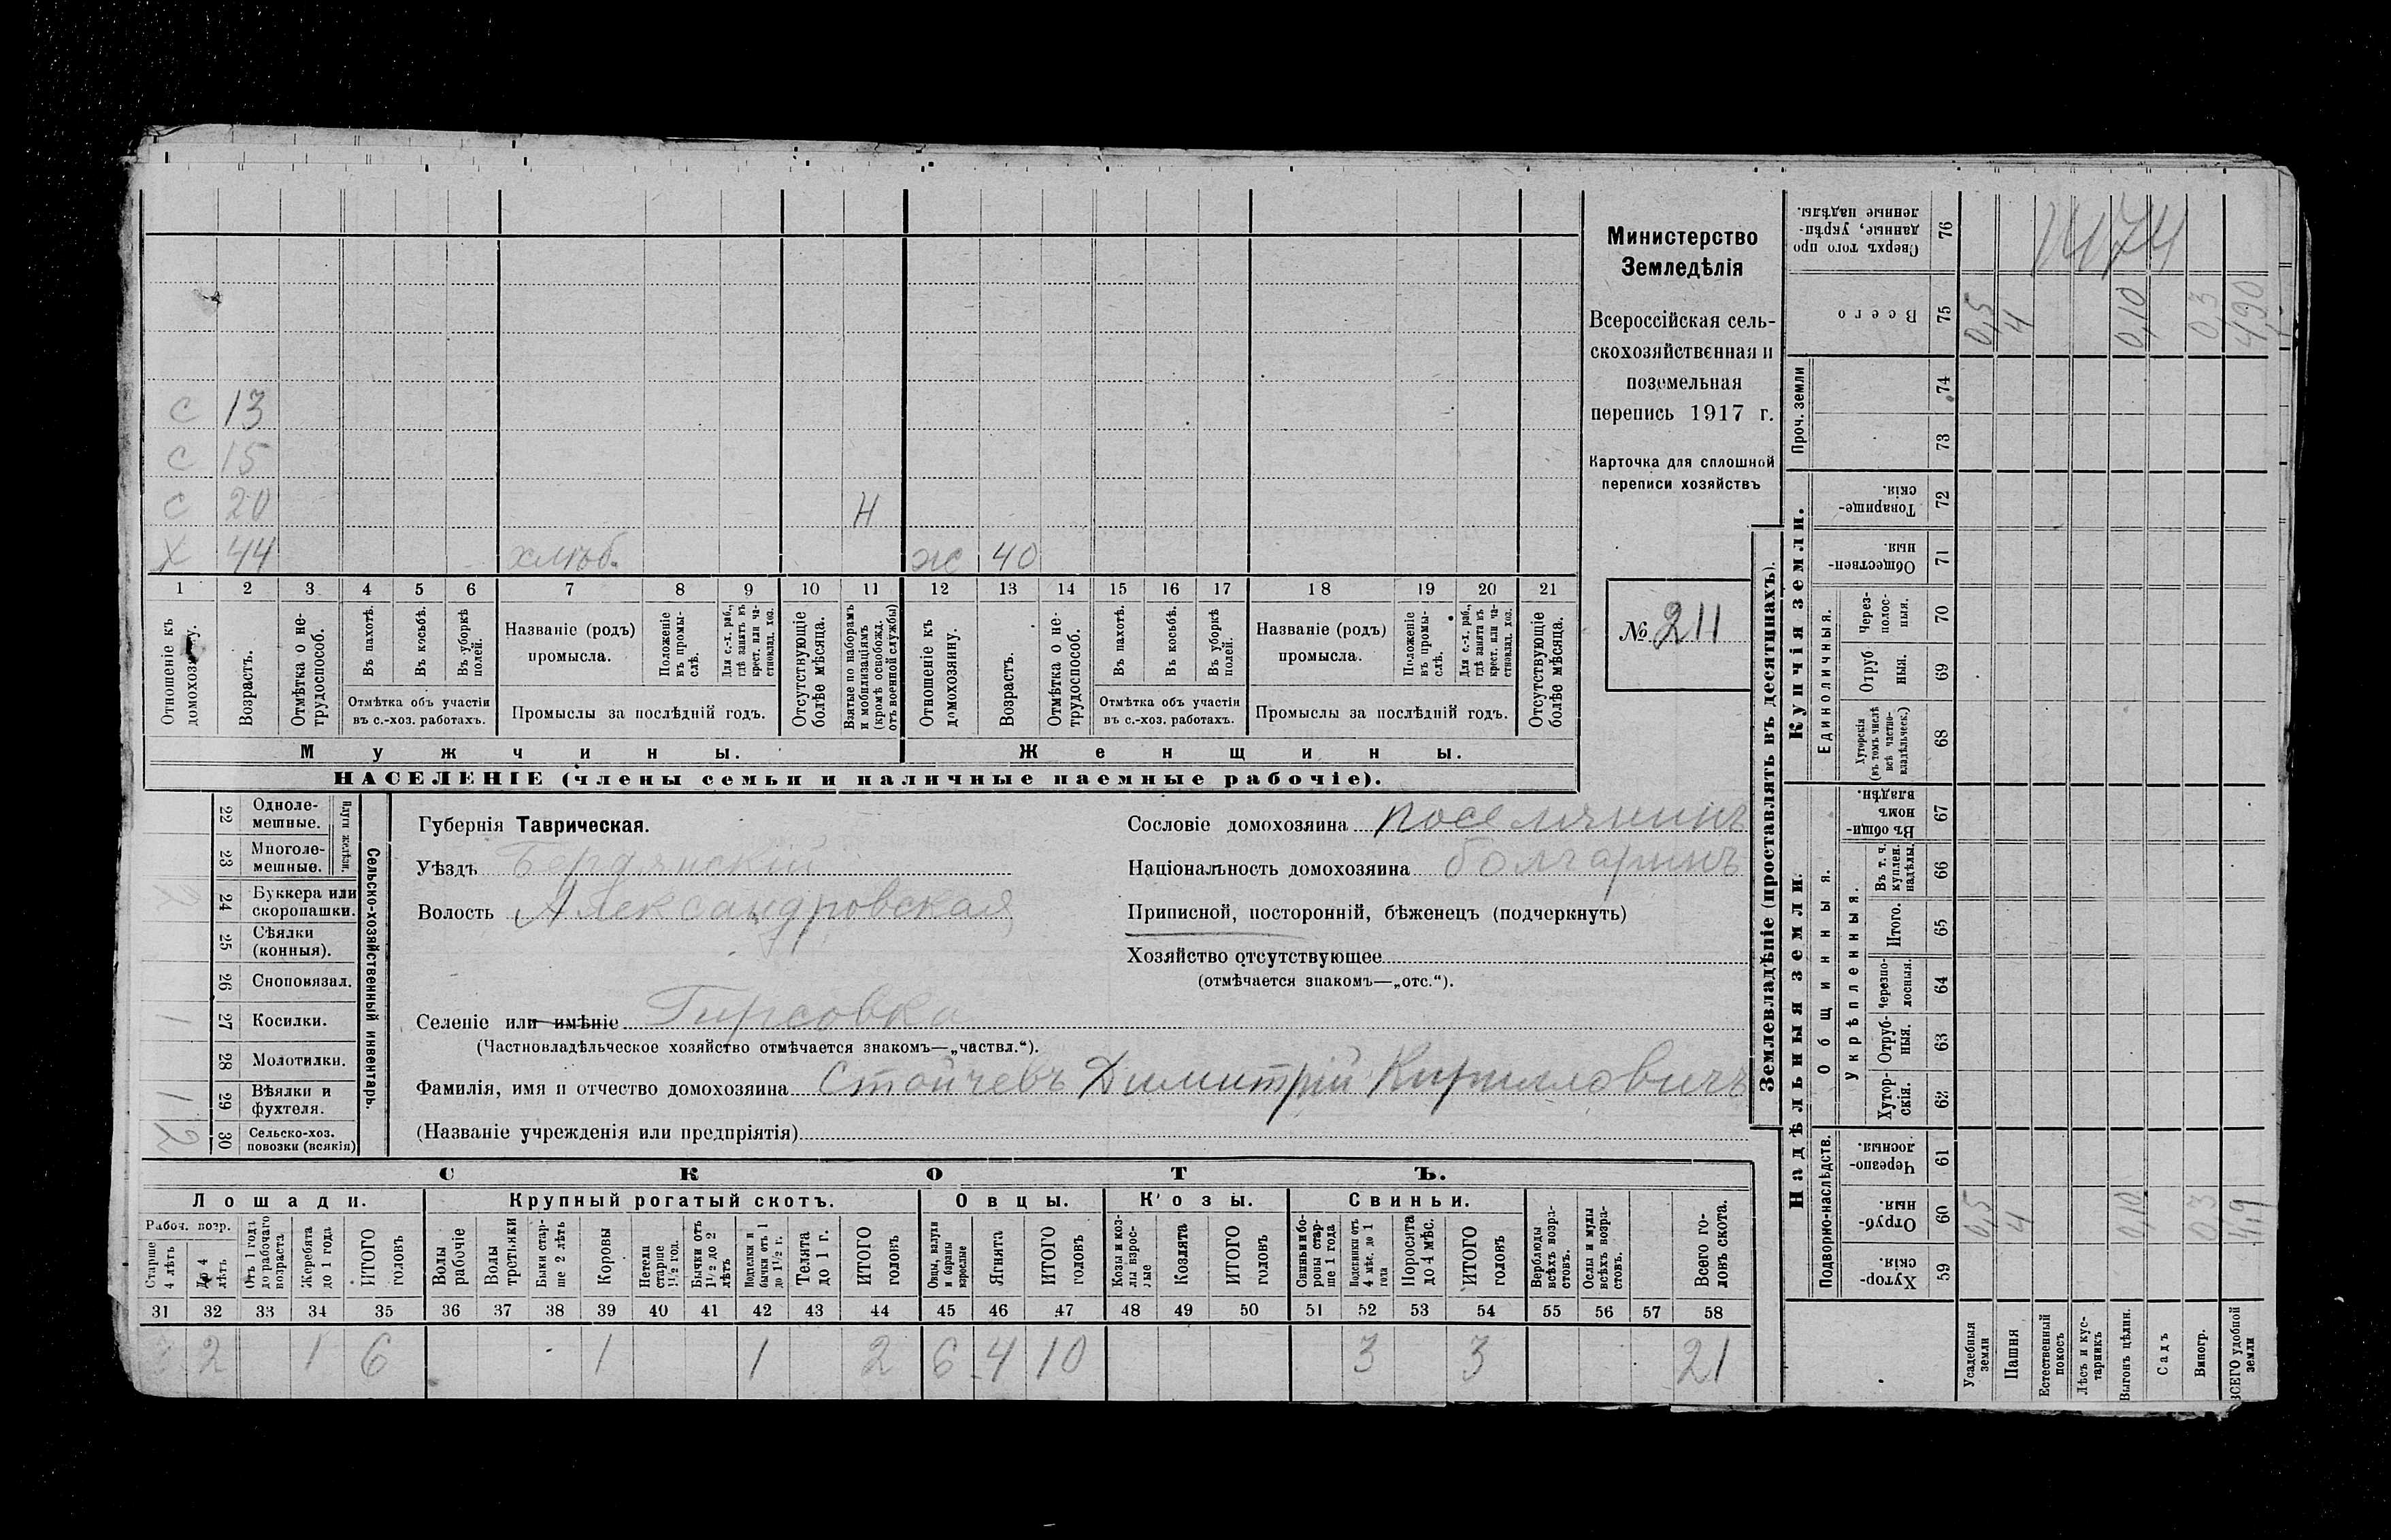 Министерство
Земледѣлія
Всероссійская сель-
скохозяйственная и
поземельная
перепись 1917 г.
Карточка для сплошной
переписи хозяйствъ
№ 211
С 13
С 15
С 20 Н
Х 44 хлѣб. ж 40
1 2 3 4 5 6 7 8 9 10 11 12 13 14 15 16 17 18 19 20 21
Отношеніе къ домохозяину.
Возрастъ.
Отмѣтка о не-
трудоспособ.
Въ пахотѣ.
Въ косьбѣ.
Въ уборкѣ
полей.
Отмѣтка объ участіи
въ с.-хоз. работахъ.
Названіе (родъ)
промысла.
Положеніе
въ промы-
слѣ.
Для с.-х. раб.,
гдѣ занятъ въ
крест. или ча-
стновлад. хоз.
Промыслы за послѣдній годъ.
Отсутствующіе
болѣе мѣсяца.
Взятые по наборамъ
и мобилизаціямъ
(кромѣ освобожд.
отъ военной службы)
Отношеніе къ
домохозяину.
Возрастъ.
Отмѣтка о не-
трудоспособ.
Въ пахотѣ.
Въ косьбѣ.
Въ уборкѣ
полей.
Отмѣтка объ участіи
въ с.-хоз. работахъ.
Названіе (родъ)
промысла.
Положеніе
въ промы-
слѣ.
Для с.-х. раб.,
гдѣ занята въ
крест. или ча-
стновлад. хоз.
Промыслы за послѣдній годъ.
Отсутствующіе
болѣе мѣсяца.
Мужчины. Женщины.
НАСЕЛЕНІЕ (члены семьи и наличные наемные рабочіе).
Сельско-хозяйственный инвентарь.
Плуги желѣзн.
22 Одноле-
мешные.
23 Многоле-
мешные.
24 Буккера или
скоропашки.
25 Сѣялки
(конныя).
26 Сноповязал.
1 27 Косилки.
28 Молотилки.
1 29 Вѣялки и
фухтеля.
2 30 Сельско-хоз.
повозки (всякія)
Губернія Таврическая.
Уѣздъ Бердянскій
Волость Александровская
Сословіе домохозяина поселянинъ
Національность домохозяина болгаринъ
Приписной, посторонній, бѣженецъ (подчеркнуть)
Хозяйство отсутствующее
(отмѣчается знакомъ—„отс.“).
Селеніе или имѣніе Гирсовка
(Частновладѣльческое хозяйство отмѣчается знакомъ—„частвл.“).
Фамилія, имя и отчество домохозяина Стойчевъ Димитрій Кирилловичъ
(Названіе учрежденія или предпріятія)
СКОТЪ.
Лошади. Крупный рогатый скотъ. Овцы. Козы. Свиньи.
Рабоч. возр.
Старше
4 лѣтъ
До 4
лѣтъ
Отъ 1 года
до рабочаго
возраста
Жеребята
до 1 года
ИТОГО
головъ
Волы
рабочіе
Волы
третьяки
Быки стар-
ше 2 лѣтъ
Коровы
Нетели
старше
1½ год.
Бычки отъ
1½ до 2
лѣтъ
Подтелки и
бычки отъ 1
до 1½ г.
Телята
до 1 г.
ИТОГО
головъ
Овцы, валухи
и бараны
взрослые
Ягнята
ИТОГО
головъ
Козы и коз-
лы взрос-
лые
Козлята
ИТОГО
головъ
Свиньи бо-
ровы стар-
ше 1 года
Подсвинки отъ
4 мѣс. до 1
года
Поросята
до 4 мѣс.
ИТОГО
головъ
Верблюды
всѣхъ возра-
стовъ.
Ослы и мулы
всѣхъ возра-
стовъ.
Всего го-
ловъ скота.
31 32 33 34 35 36 37 38 39 40 41 42 43 44 45 46 47 48 49 50 51 52 53 54 55 56 57 58
3 2 1 6 1 1 2 6 4 10 3 3 21
Землевладѣніе (проставлять въ десятинахъ).
Надѣльныя земли.
Купчія земли.
Проч. земли
Подворно-наслѣдств.
Общинныя.
Укрѣпленныя.
Единоличныя.
Хутор-
скія.
59
Отруб-
ныя.
60
Черезпо-
лосныя.
61
Хутор-
скія.
62
Отруб-
ныя.
63
Черезпо-
лосныя.
64
Итого.
65
Въ т. ч.
куплен.
надѣлы.
66
Въ общи-
номъ
владѣн.
67
Хуторскія
(въ томъ числѣ
всѣ частно-
владѣльческ.)
68
Отруб
ныя.
69
Через-
полос-
ныя.
70
Обществен-
ныя.
71
Товарище-
скія.
72
73
74
Всего
75
Сверхъ того про
данные, укрѣп-
ленные надѣлы.
76
1474
Усадебныя
земли
0,5 0,5
Пашня
4 4
Естественный
покосъ
Лѣсъ и кус-
тарникъ
Выгонъ цѣлин.
0,10 0,10
Садъ
Виногр.
0,3 0,3
ВСЕГО удобной
земли
4,9 4,90